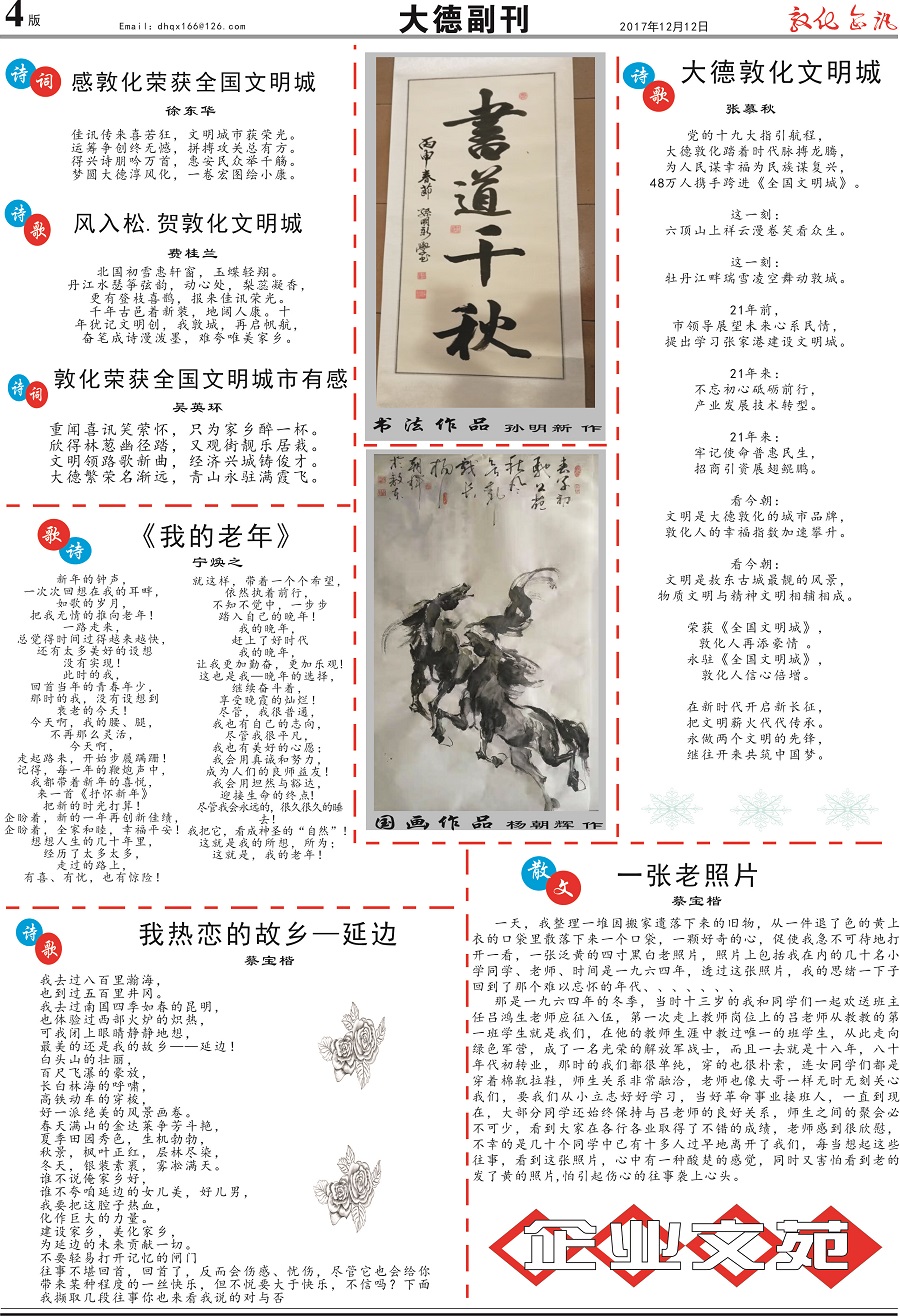 4版
Email：dhqx166@126.com
大德副刊
2017年12月12日
敦化金讯
诗词
感敦化荣获全国文明城
徐东华
佳讯传来喜若狂，文明城市获荣光。
运筹争创终无憾，拼搏攻关总有方。
得兴诗朋吟万首，惠安民众举千觞。
梦圆大德淳风化，一卷宏图绘小康。
诗歌
风入松.贺敦化文明城
费桂兰
北国初雪惠轩窗，玉蝶轻翔。
丹江水瑟筝弦韵，动心处，梨蕊凝香，
更有登枝喜鹊，报来佳讯荣光。
千年古邑着新装，地阔人康。十
年犹记文明创，我敦城，再启帆航，
奋笔成诗漫泼墨，难夸唯美家乡。
诗词
敦化荣获全国文明城市有感
吴英环
重闻喜讯笑萦怀，只为家乡醉一杯。
欣得林葱幽径踏，又观街靓乐居栽。
文明领路歌新曲，经济兴城铸俊才。
大德繁荣名渐远，青山永驻满霞飞。
歌诗
《我的老年》
宁焕之
新年的钟声，
一次次回想在我的耳畔，
如歌的岁月，
把我无情的推向老年！
一路走来，
总觉得时间过得越来越快，
还有太多美好的设想
没有实现！
此时的我，
回首当年的青春年少，
那时的我，没有设想到
衰老的今天！
今天啊，我的腰、腿，
不再那么灵活，
今天啊，
走起路来，开始步履蹒跚！
记得，每一年的鞭炮声中，
我都带着新年的喜悦，
来一首《抒怀新年》
把新的时光打算！
企盼着，新的一年再创新佳绩，
企盼着，全家和睦，幸福平安！
想想人生的几十年里，
经历了太多太多，
走过的路上，
有喜、有忧，也有惊险！
就这样，带着一个个希望，
依然执着前行，
不知不觉中，一步步
踏入自己的晚年！
我的晚年，
赶上了好时代
我的晚年，
让我更加勤奋，更加乐观！
这也是我—晚年的选择，
继续奋斗着，
享受晚霞的灿烂！
尽管，我很普通，
我也有自己的志向，
尽管我很平凡，
我也有美好的心愿；
我会用真诚和努力，
成为人们的良师益友！
我会用坦然与豁达，
迎接生命的终点！
尽管我会永远的，很久很久的睡
去！
我把它，看成神圣的“自然”！
这就是我的所想，所为；
这就是，我的老年！
書道千秋
丙申春節
孫明新
书法作品 孙明新 作
国画作品 杨朝辉 作
诗歌
大德敦化文明城
张慕秋
党的十九大指引航程，
大德敦化踏着时代脉搏龙腾，
为人民谋幸福为民族谋复兴，
48万人携手跨进《全国文明城》。
这一刻：
六顶山上祥云漫卷笑看众生。
这一刻：
牡丹江畔瑞雪凌空舞动敦城。
21年前，
市领导展望未来心系民情，
提出学习张家港建设文明城。
21年来：
不忘初心砥砺前行，
产业发展技术转型。
21年来：
牢记使命普惠民生，
招商引资展翅鲲鹏。
看今朝：
文明是大德敦化的城市品牌，
敦化人的幸福指数加速攀升。
看今朝：
文明是敖东古城最靓的风景，
物质文明与精神文明相辅相成。
荣获《全国文明城》，
敦化人再添豪情 。
永驻《全国文明城》，
敦化人信心倍增。
在新时代开启新长征，
把文明薪火代代传承。
永做两个文明的先锋，
继往开来共筑中国梦。
诗歌
我热恋的故乡—延边
蔡宝楷
我去过八百里瀚海，
也到过五百里井冈。
我去过南国四季如春的昆明，
也体验过西部火炉的炽热，
可我闭上眼睛静静地想，
最美的还是我的故乡——延边！
白头山的壮丽，
百尺飞瀑的豪放，
长白林海的呼啸，
高铁动车的穿梭，
好一派绝美的风景画卷。
春天满山的金达莱争芳斗艳，
夏季田园秀色，生机勃勃，
秋景，枫叶正红，层林尽染，
冬天，银装素裹，雾凇满天。
谁不说俺家乡好，
谁不夸咱延边的女儿美，好儿男，
我要把这腔子热血，
化作巨大的力量。
建设家乡，美化家乡，
为延边的未来贡献一切。
不要轻易打开记忆的闸门
往事不堪回首，回首了，反而会伤感、忧伤，尽管它也会给你
带来某种程度的一丝快乐，但不悦要大于快乐，不信吗？下面
我撷取几段往事你也来看我说的对与否
散文
一张老照片
蔡宝楷
一天，我整理一堆因搬家遗落下来的旧物，从一件退了色的黄上
衣的口袋里散落下来一个口袋，一颗好奇的心，促使我急不可待地打
开一看，一张泛黄的四寸黑白老照片，照片上包括我在内的几十名小
学同学、老师、时间是一九六四年，透过这张照片，我的思绪一下子
回到了那个难以忘怀的年代、、、、、、
那是一九六四年的冬季，当时十三岁的我和同学们一起欢送班主
任吕鸿生老师应征入伍，第一次走上教师岗位上的吕老师从教教的第
一班学生就是我们，在他的教师生涯中教过唯一的班学生，从此走向
绿色军营，成了一名光荣的解放军战士，而且一去就是十八年，八十
年代初转业，那时的我们都很单纯，穿的也很朴素，连女同学们都是
穿着棉靰拉鞋，师生关系非常融洽，老师也像大哥一样无时无刻关心
我们，要我们从小立志好好学习，当好革命事业接班人，一直到现
在，大部分同学还始终保持与吕老师的良好关系，师生之间的聚会必
不可少，看到大家在各行各业取得了不错的成绩，老师感到很欣慰，
不幸的是几十个同学中已有十多人过早地离开了我们，每当想起这些
往事，看到这张照片，心中有一种酸楚的感觉，同时又害怕看到老的
发了黄的照片,怕引起伤心的往事袭上心头。
企业文苑